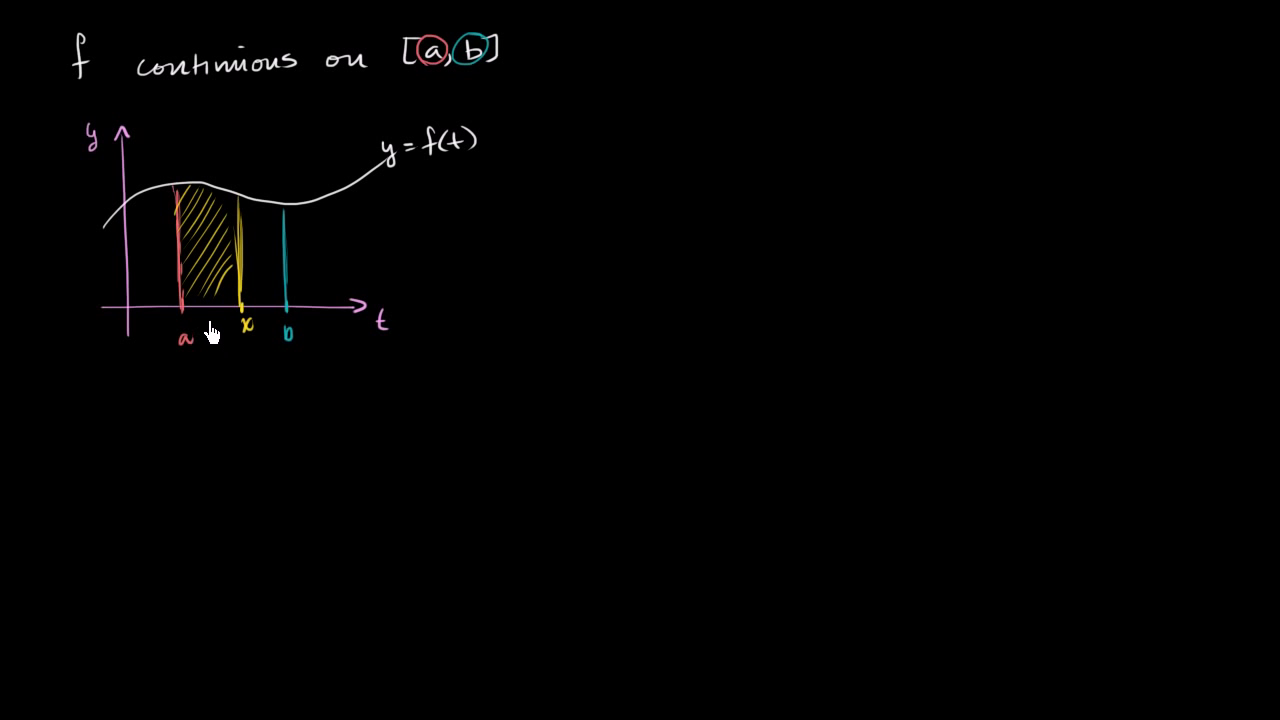 f continuous on [a,b]
y
y = f(t)
a x b t